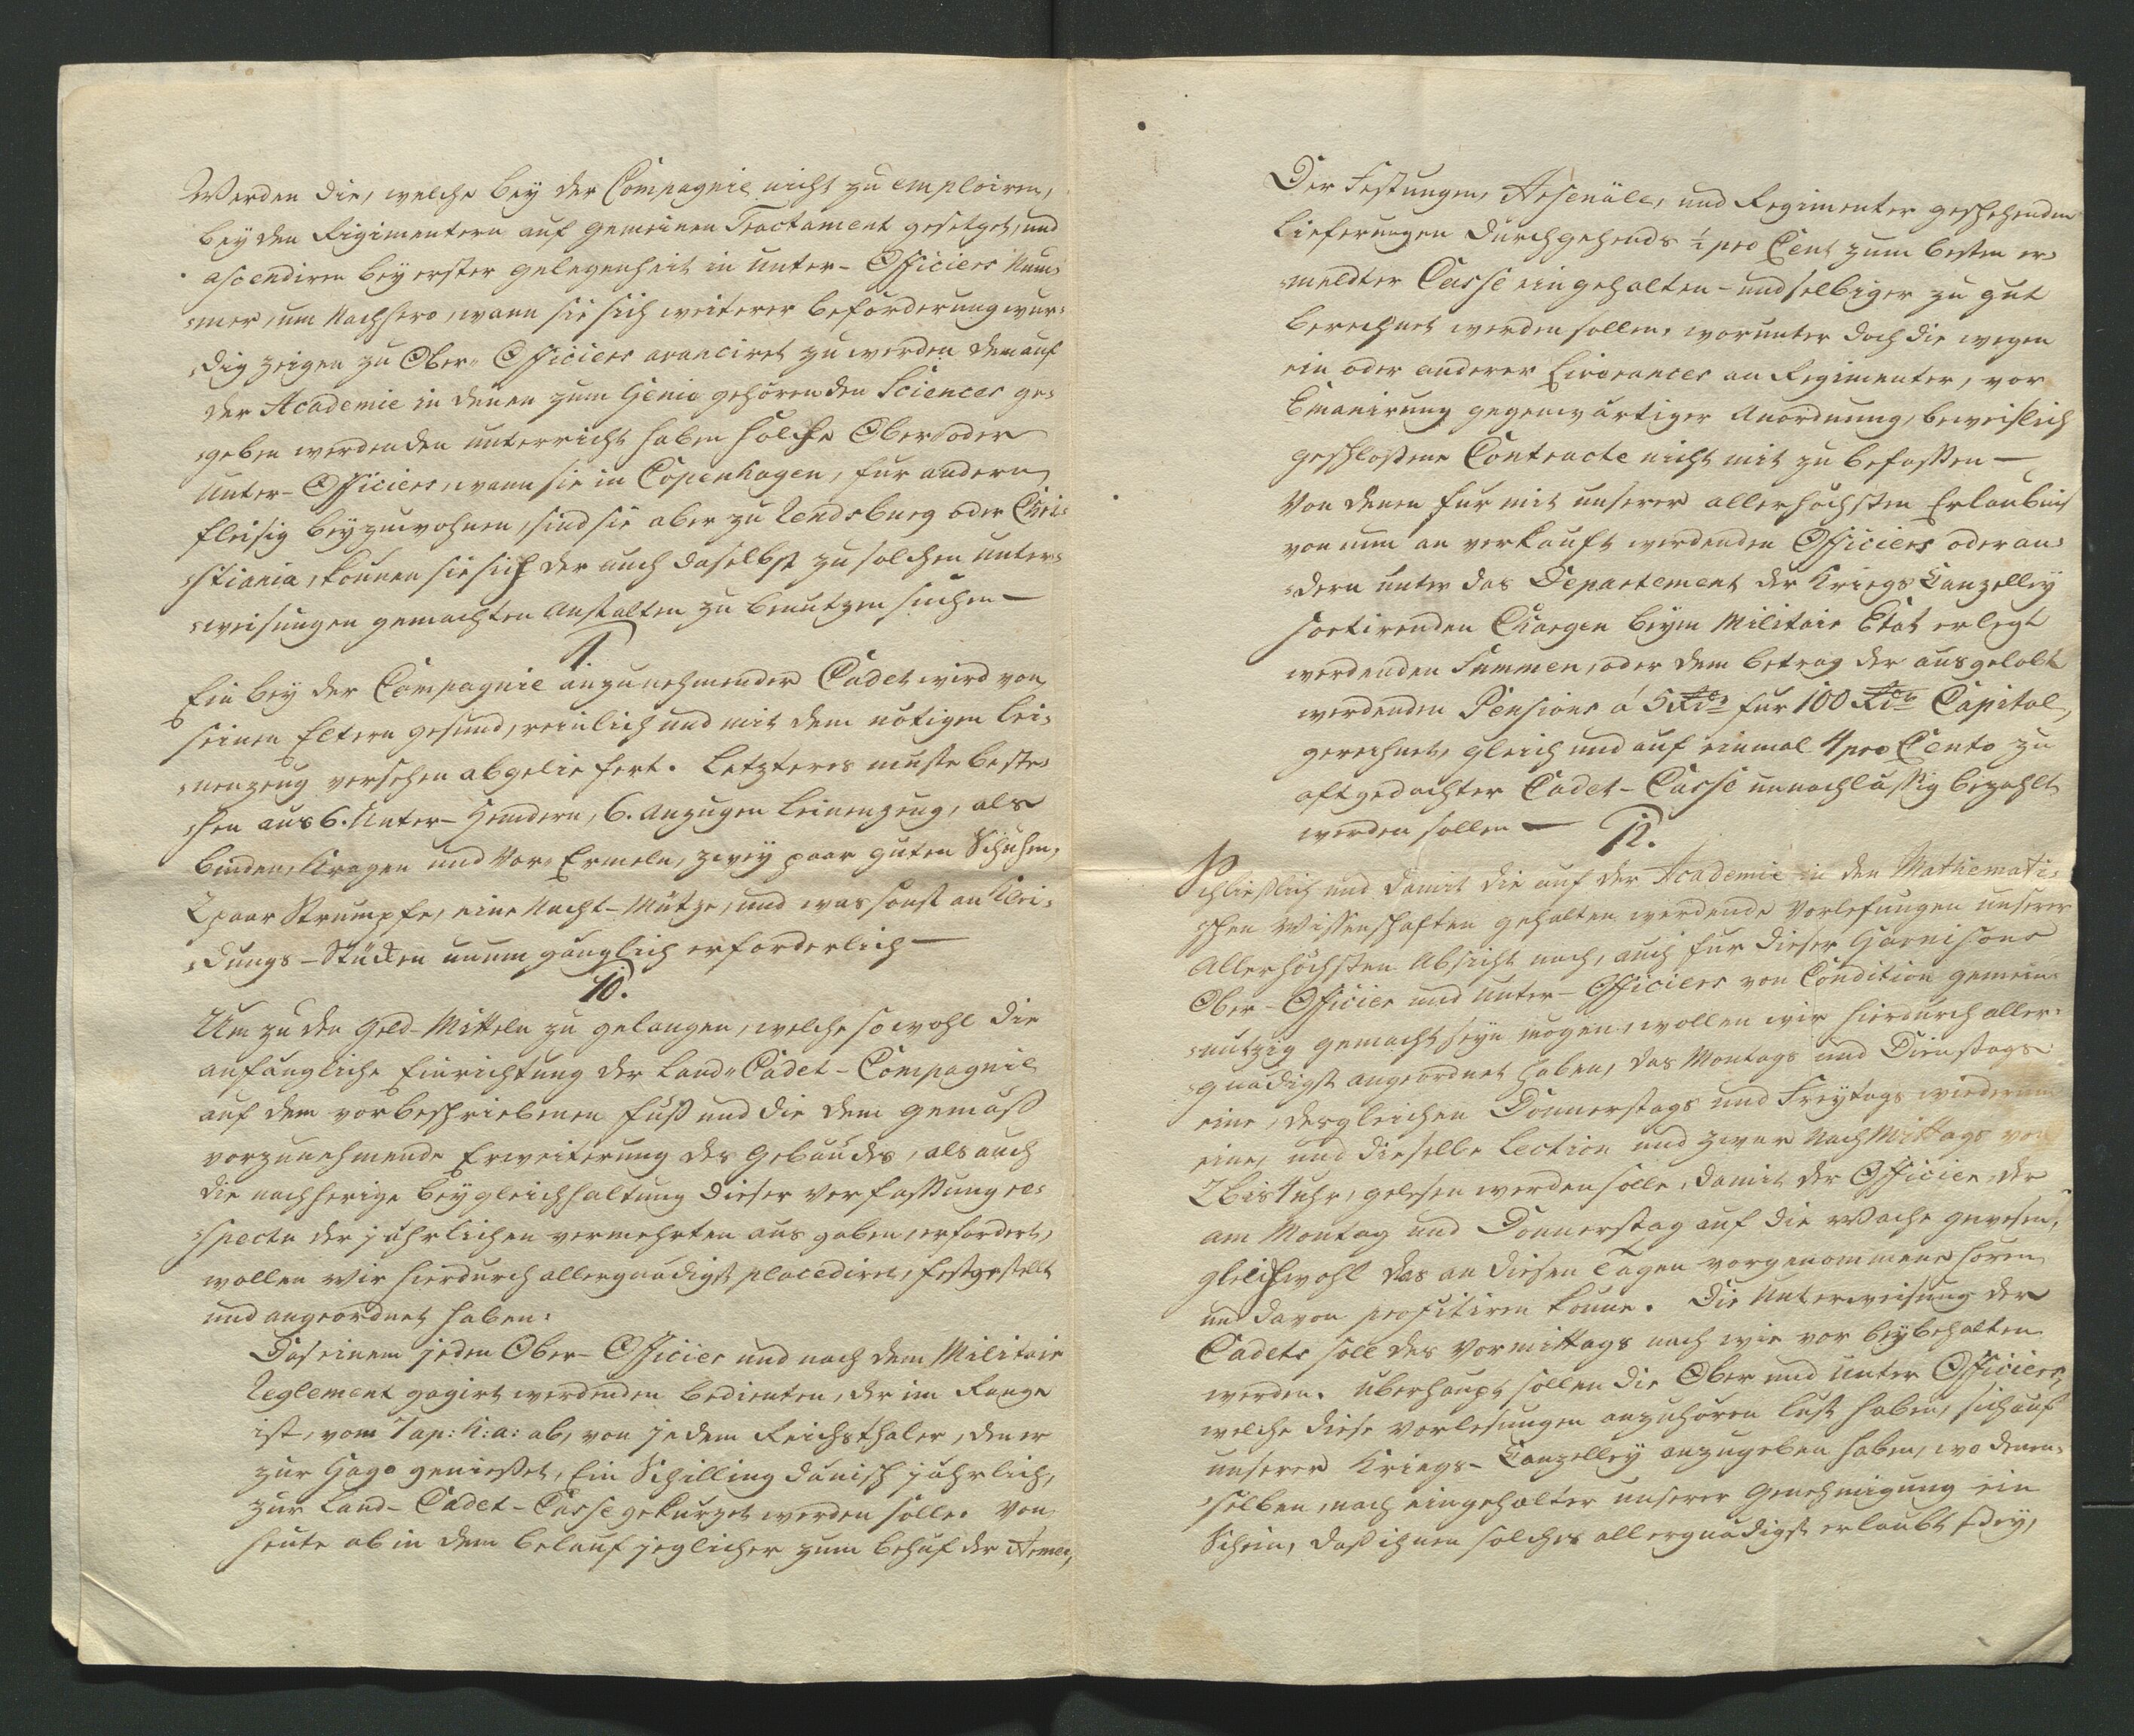 Werden die, welche bey der Compagnie nicht zu emploiren,
bey den Regimentern auf gemeinen Tractament gesetzet, und
ascendiren bey erster gelegenheit in Unter-Officiers Num-
-mer, um Nachhero, wann sie sich weiterer beforderung wur-
-dig zeigen zu Ober-Officiers avanciret zu werden dem auf
der Academie in denen zum Genie gehörenden Sciences ge-
-geben werdenden unterricht haben solche Ober oder
Unter-Officiers, wann sie in Copenhagen, fur andern
fleisig beyzuwohnen, sind sie aber zu Rendsburg oder Chri-
-stiania, können sie sich der auch daselbst zu solchen unter-
-weisungen gemachten Anstalten zu benutzen suchen —
9.
Ein bey der Compagnie anzunehmender Cadet wird von
seinen Eltern gesund, reinlich und mit dem nötigen Lei-
-nenzeug versehen abgeliefert. Letzteres muste beste-
-hen aus 6. Unter-Hemdern, 6. Anzugen Leinenzeug, als
binden, Kragen und Vor-Ermeln, zwey paar guten Schuhen,
2 paar Strumpfe, eine Nacht-Mutze, und was sonst an Klei-
-dungs-Stücken unumgänglich erforderlich —
10.
Um zu den Geld-Mitteln zu gelangen, welche sowohl die
anfängliche Einrichtung der Land-Cadet-Compagnie
auf dem vorbeschriebenen fuß und die dem gemäß
vorzunehmende Erweiterung des Gebäudes, als auch
die nachherige beygleichhaltung dieser Verfaßung re-
-spectu der jährlichen vermehrten ausgaben, erfordert,
wollen Wir hierdurch allergnädigst placediret, festgestellt
und angeordnet haben:
Daß einem jeden Ober-Officier und nach dem Militair
Reglement gagirt werdenden bedienten, der im Range
ist, vom 1 ap: h: a: ab, von jedem Reichsthaler, den er
zur Gage genießet, Ein Schilling dänisch jährlich,
zur Land-Cadet-Casse gekurzet werden solle. Von
heute ab in dem belauf jeglicher zum behuf der Armee,
Der Festungen, Arsenäle, und Regimenter geschehenden
Lieferungen durchgehends ½ pro Cent zum besten er-
-meldter Casse eingehalten - und selbiger zu gut
berechnet werden sollen, worunter doch die wegen
ein oder anderer Livrances an Regimenter, vor
Emanirung gegenwärtiger Anordnung, beweislich
geschloßene Contracte nicht mit zu befaßen —
Von denen fur mit unserer allerhöchsten Erlaubnis
von nun an verkauft werdenden Officiers oder an-
-dern unter das Departement der Kriegs Canzelley
sortirenden Chargen beym Militair Etat erlegt
werdenden Summen, oder dem betrag der ausgelobt
werdenden Pensions á 5 Rdr fur 100 Rdr Capital,
gerechnet, gleich und auf einmal 4 pro Cento zu
oftgedachter Cadet-Casse unnachläßig bezahlt
werden sollen — 12.
Schließlich und damit die auf der Academie in den Mathemati-
-schen Wissenschaften gehalten werdende Vorlesungen unserer
Allerhöchsten Absicht nach, auch fur dieser Garnisons
Ober-Officier und Unter-Officiers von Condition gemein-
-nutzig gemacht seyn mögen, wollen wir hierdurch aller-
-gnädigst angeordnet haben, das Montags und Dienstags
eine, desgleichen Donnerstags und Freytags wiederum
eine, und dieselbe Lection und zwar NachMittags von
2 bis 4 uhr, gelesen werden solle, damit der Officier, der
am Montag und Donnerstag auf die Wache gewesen,
gleichwohl das an diesen Tagen vorgenommene hören
und davon profitiren könne. Die Unterweisung der
Cadets soll des Vormittags nach wie vor beybehalten
werden. Überhaupt sollen die Ober und Unter Officiers,
welche diese Vorlesungen anzuhören lust haben, sich auf
unserer Kriegs-Canzelley anzugeben haben, wo denen-
-selben, nach eingeholter unserer Genehmigung ein
Schein, daß ihnen solches allergnädigst erlaubt sey,